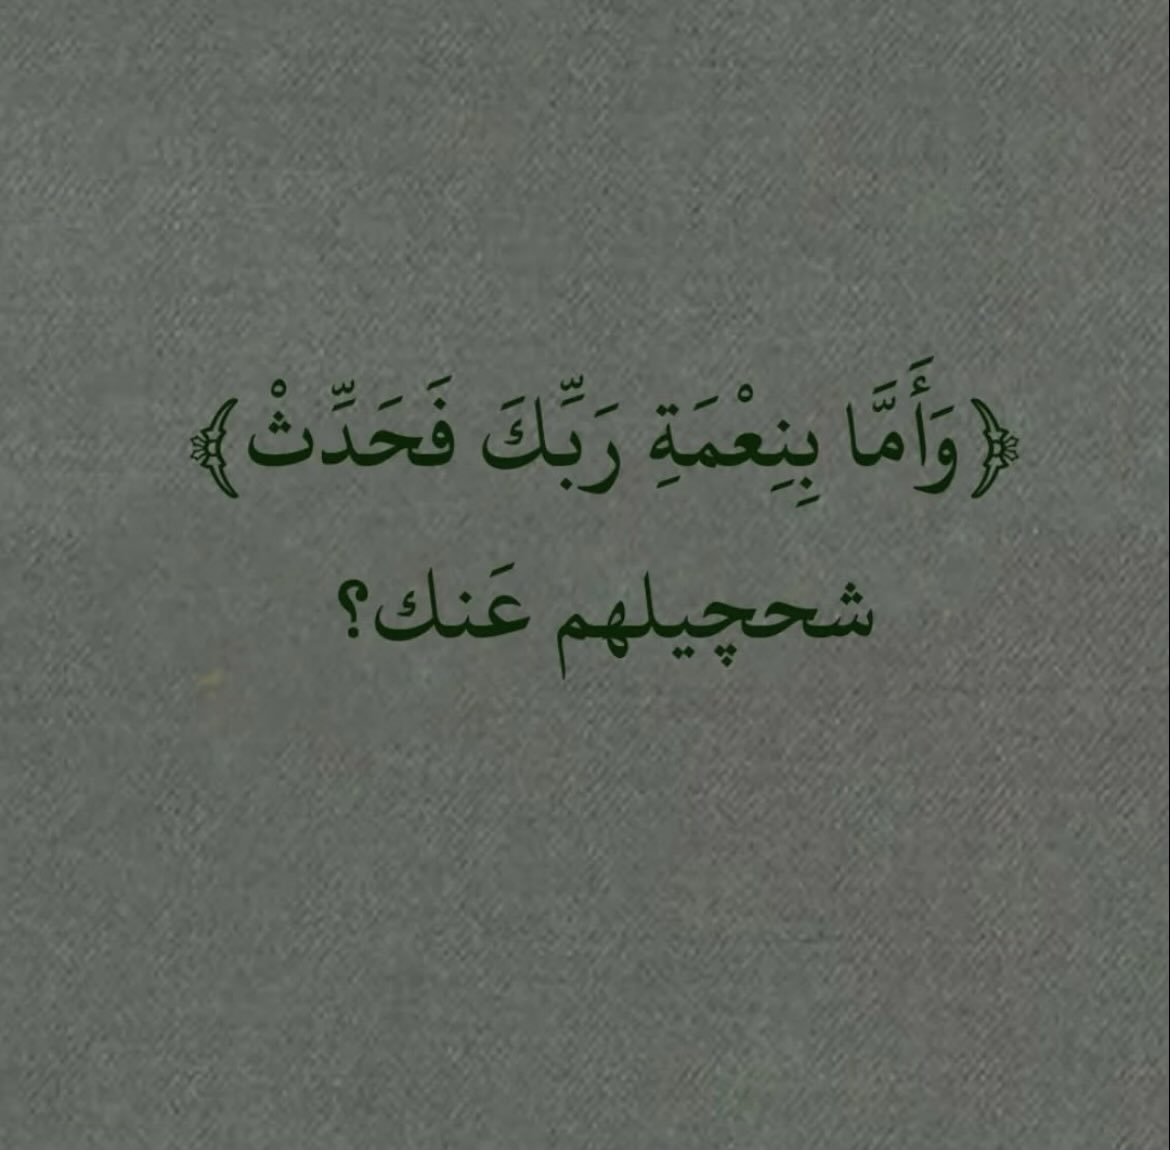 ﴿وَأَمَّا بِنِعْمَةِ رَبِّكَ فَحَدِّثْ﴾
شححچيلهم عَنك؟